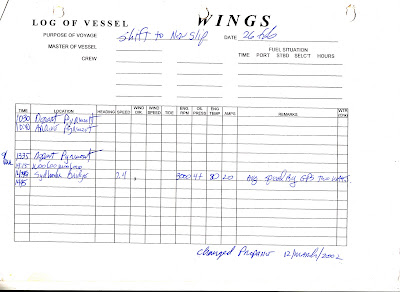 LOG OF VESSEL WINGS
PURPOSE OF VOYAGE shift to New Slip DATE 26 feb
MASTER OF VESSEL FUEL SITUATION
CREW TIME PORT STBD SELC'T HOURS
TIME LOCATION HEADING SPEED WIND DIR. WIND SPEED TIDE ENG RPM OIL PRESS ENG TEMP AMPS REMARKS WTR
1030 Depart Pyrmont
Arrive Pyrmont
1335 Depart Pyrmont
1415
Syd Harbr Bridge 7.4 3000 44 80 20 Avg speed by GPS
1445
Changed Propane 12/March/2002